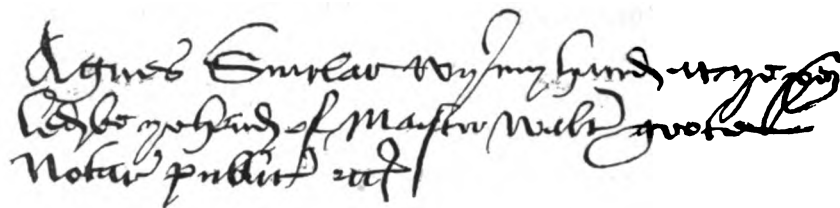 Agnes Sinclar wyt my hand at ye pen
led be ye hand of Maister Walter
Notar publict etc